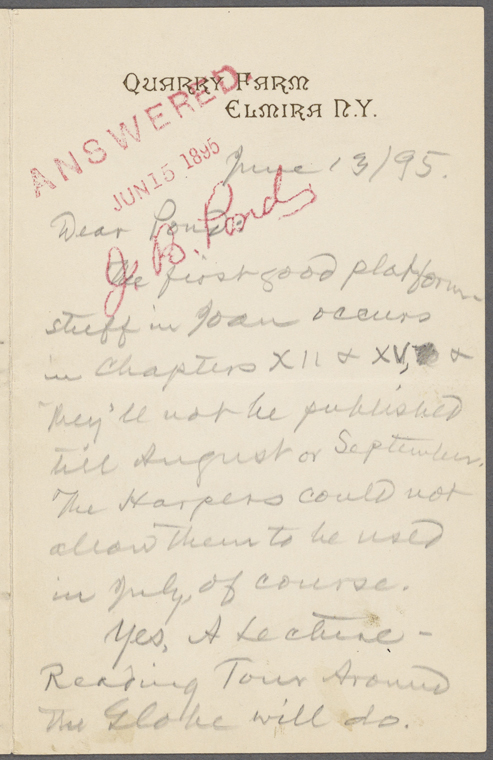 QUARRY FARM
ELMIRA N.Y.
ANSWERED.
JUN 15 1895
J. B. Pond
June 13/95.
Dear Pond:
The first good platform-
stuff in Joan occurs
in Chapters XII & XV, &
they'll not be published
till August or September.
The Harpers could not
allow them to be used
in July, of course.
Yes, A Lecture-
Reading Tour Around
the Globe will do.